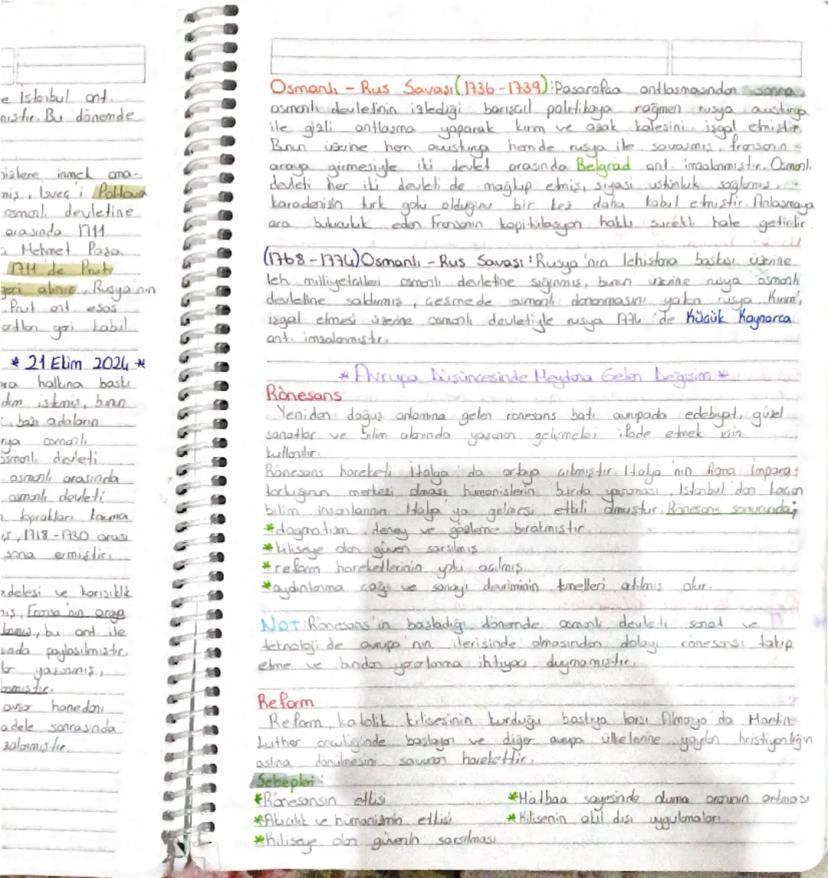 e İstanbul ant.
mıştır. Bu dönemde
nizlere inmek ama-
miş, İsveç'i Poltova
osmanlı devletine
arasında 1711
Mehmet Paşa
1711'de Prut
geri alınır. Rusya'nın
Prut ant esas
geri kabul
* 21 Ekim 2024 *
ra halkına baskı
dım istemiş, bunun
bazı adaların
rya osmanlı
osmanlı devleti
osmanlı arasında
osmanlı devleti
toprakları
iş, 1718-1730 arası
sona ermiştir.
adelesi ve karışıklık
mış, Fransa'nın araya
bu ant ile
ında paylaşılmıştır.
lar yaşanmış,
lanmıştır.
hanedanı
adele sonrasında
zalanmıştır.
Osmanlı - Rus Savaşı (1736-1739): Pasarofça antlaşmasından sonra
osmanlı devletinin izlediği barışçıl politikaya rağmen rusya avusturya
ile gizli antlaşma yaparak kırım ve azak kalesini işgal etmiştir.
Bunun üzerine hem avusturya hemde rusya ile savaşmış, fransanın
araya girmesiyle iki devlet arasında Belgrad ant. imzalanmıştır. Osmanlı
devleti her iki devleti de mağlup etmiş, siyasi üstünlük sağlamış,
karadenizin türk gölü olduğunu bir kez daha kabul etmiştir. Anlaşmaya
ara buluculuk eden fransanın kapitülasyon hakkı sürekli hale getirilir.
(1768-1774) Osmanlı - Rus Savaşı: Rusya'nın lehistana baskısı üzerine
leh milliyetçileri osmanlı devletine sığınmış, bunun üzerine rusya osmanlı
devletine saldırmış, çeşmede osmanlı donanmasını yakan rusya Kırım'ı
işgal etmesi üzerine osmanlı devletiyle rusya 1774'de Küçük Kaynarca
ant. imzalanmıştır.
* Avrupa Düşüncesinde Meydana Gelen Değişim *
Rönesans
Yeniden doğuş anlamına gelen rönesans batı avrupada edebiyat, güzel
sanatlar ve bilim alanında yaşanan gelişmeleri ifade etmek için
kullanılır.
Rönesans hareketi İtalya'da ortaya çıkmıştır. İtalya'nın Roma İmpara-
torluğunun merkezi olması hümanistlerin burda yaşaması, İstanbul'dan kaçan
bilim insanlarının İtalya ya gelmesi etkili olmuştur. Rönesans sonucunda;
* dogmatizm deney ve gözleme bırakmıştır
* kiliseye olan güven sarsılmış
* reform hareketlerinin yolu açılmış
* aydınlanma çağı ve sanayi devriminin temelleri atılmış olur.
NOT: Rönesans'ın başladığı dönemde osmanlı devleti sanat ve
teknoloji de avrupa'nın ilerisinde olmasından dolayı rönesansı takip
etme ve bundan yararlanma ihtiyacı duymamıştır.
Reform
Reform katolik kilisesinin kurduğu baskıya karşı Almanya'da Martin
Luther öncülüğünde başlayan ve diğer avrupa ülkelerine yayılan hristiyanlığın
aslına dönülmesini savunan harekettir.
Sebepleri:
* Rönesansın etkisi * Matbaa sayesinde okuma oranının artması
* Akılcılık ve hümanizmin etkisi * Kilisenin akıl dışı uygulamaları
* Kiliseye olan güvenin sarsılması